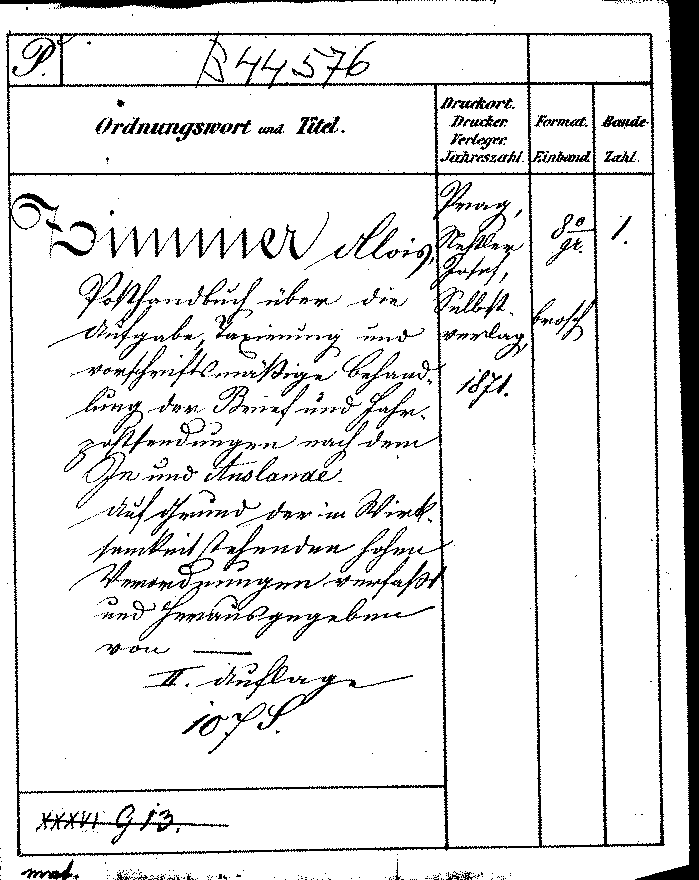 P.
B 44.576
Ordnungswort und Titel.
Druckort.
Drucker
Verleger.
Jahreszahl.
Format.
Einband
Bande-
Zahl.
Zimmer Alois,
Posthandbuch über die
Aufgabe, Taxierung und
vorschriftsmäßige Behand-
lung der Brief und Fahr-
postsendungen nach dem
In und Auslande.
Auf Grund der in Wirk-
samkeit stehenden hohen
Verordnungen verfaßt
und herausgegeben
von —
II. Auflage
107 S.
Prag,
Josef,
Selbst-
verlag,
1871.
8°
gr.
brosch
1.
XXXVI G 13.